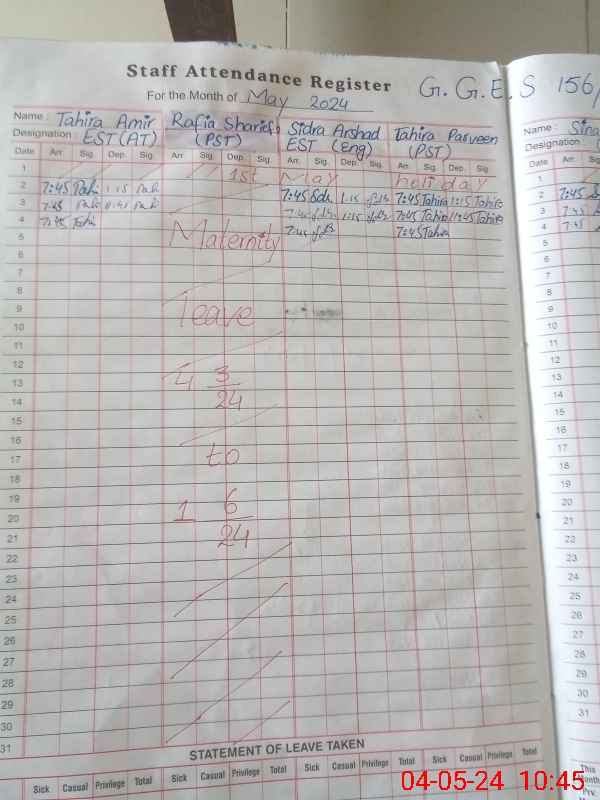 Staff Attendance Register
G.G.E.S 156/
For the Month of May 2024
Name : Tahira Amir Rafia Sharief Sidra Arshad Tahira Parveen
Designation : EST(AT) (PST) EST (Eng) (PST)
Name : Sina
Designation
Date Arr. Sig. Dep. Sig. Arr. Sig. Dep. Sig. Arr. Sig. Dep. Sig. Arr. Sig. Dep. Sig. Date Arr.
1 1st May holiday 1
2 7:45 1:15 7:45 1:15 7:45 Tahira 1:15 Tahira 2 7:45
3 7:45 7:45 Tahira 11:45 Tahira 3 7:45
4 7:45 7:45 7:45 Tahira 4 7:45
5 Maternity 5
6 6
7 7
8 8
9 leave 9
10 10
11 11
12 12
13 4 3 13
14 24 14
15 15
16 16
17 to 17
18 18
19 19
20 1 6 20
21 24 21
22 22
23 23
24 24
25 25
26 26
27 27
28 28
29 29
30 30
31 31
STATEMENT OF LEAVE TAKEN
Sick Casual Privilege Total Sick Casual Privilege Total Sick Casual Privilege Total Sick Casual Privilege Total
This
Month
Prv.
04-05-24 10:45